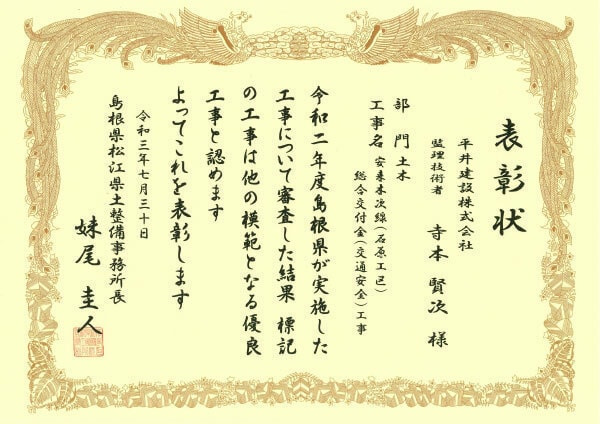 表彰状
平井建設株式会社
監理技術者 寺本 賢次 様
部門 土木
工事名 安来木次線(石原工区)
総合交付金(交通安全)工事
令和二年度島根県が実施した
工事について審査した結果 標記
の工事は他の模範となる優良
工事と認めます
よってこれを表彰します
令和三年七月三十日
島根県松江県土整備事務所長
妹尾 圭人